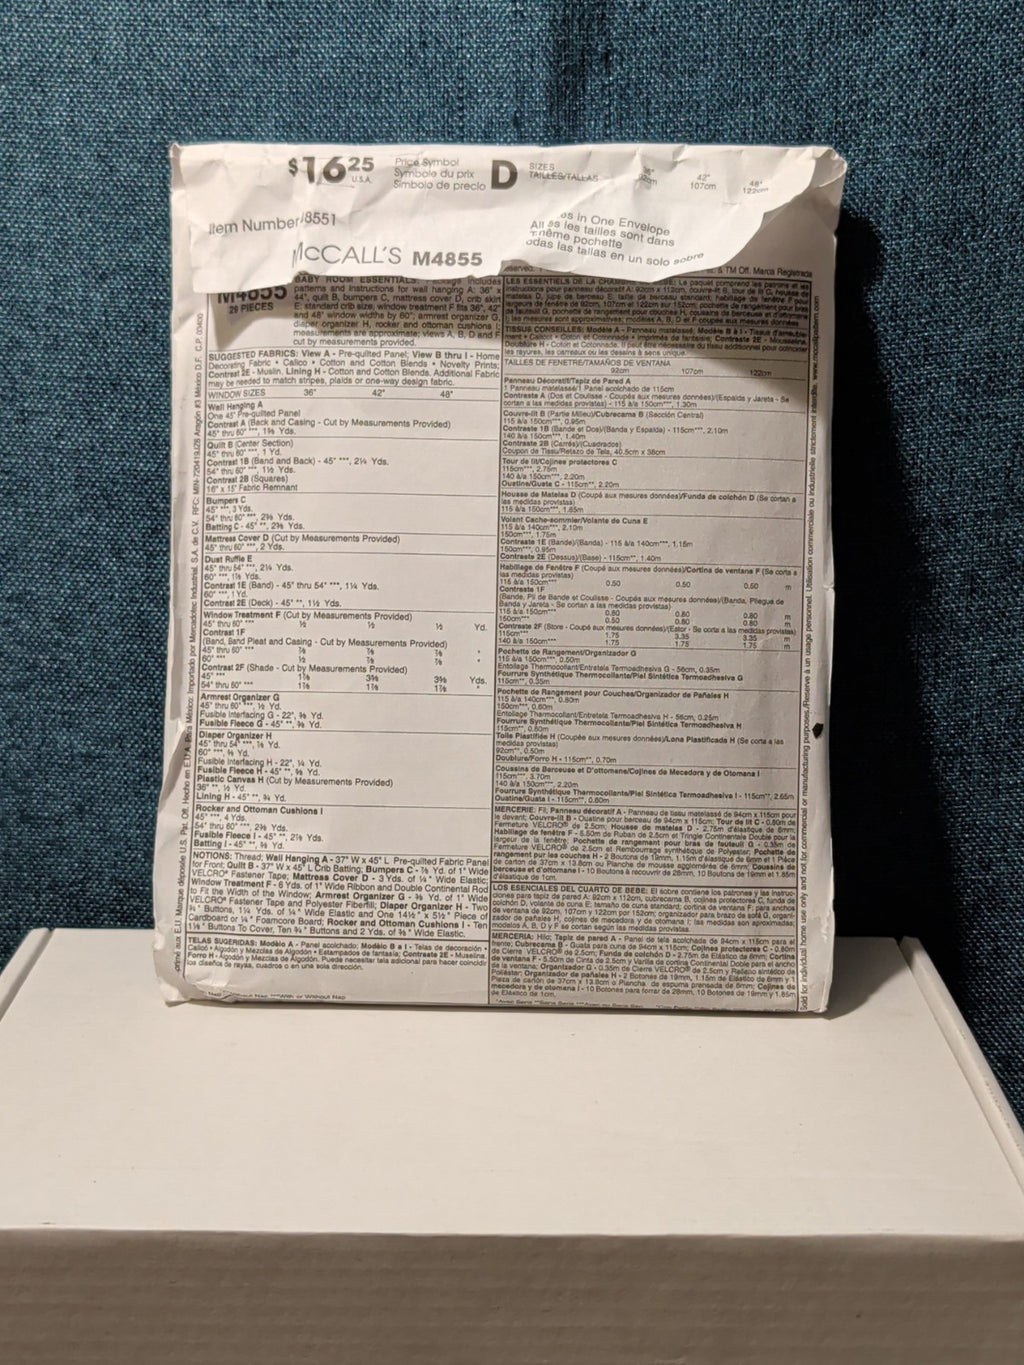 $16.25
U.S.A.
Price Symbol
Symbole du prix
Símbolo de precio
D
SIZES
TAILLES/TALLAS
36"
92cm
42"
107cm
48"
122cm
Item Number/8551
es in One Envelope
les tailles sont dans
même pochette
odas las tallas en un solo sobre
McCALL'S M4855
& TM Off. Marca Registrada
M4855
29 PIECES
BABY ROOM ESSENTIALS: Package includes
patterns and instructions for wall hanging A: 36" x
44", quilt B, bumpers C, mattress cover D, crib skirt
E: standard crib size; window treatment F fits 36", 42"
and 48" window widths by 60"; armrest organizer G,
diaper organizer H, rocker and ottoman cushions I:
measurements are approximate; views A, B, D and F
cut by measurements provided.
SUGGESTED FABRICS: View A - Pre-quilted Panel; View B thru I - Home
Decorating Fabric • Calico • Cotton and Cotton Blends • Novelty Prints;
Contrast 2E - Muslin. Lining H - Cotton and Cotton Blends. Additional Fabric
may be needed to match stripes, plaids or one-way design fabric.
WINDOW SIZES 36" 42" 48"
Wall Hanging A
One 45" Pre-quilted Panel
Contrast A (Back and Casing - Cut by Measurements Provided)
45" thru 60" ***, 1⅜ Yds.
Quilt B (Center Section)
45" thru 60" ***, 1 Yd.
Contrast 1B (Band and Back) - 45" ***, 2¼ Yds.
54" thru 60" ***, 1½ Yds.
Contrast 2B (Squares)
16" x 15" Fabric Remnant
Bumpers C
45" ***, 3 Yds.
54" thru 60" ***, 2⅜ Yds.
Batting C - 45" **, 2⅜ Yds.
Mattress Cover D (Cut by Measurements Provided)
45" thru 60" ***, 2 Yds.
Dust Ruffle E
45" thru 54" ***, 2¼ Yds.
60" ***, 1⅞ Yds.
Contrast 1E (Band) - 45" thru 54" ***, 1¼ Yds.
60" ***, 1 Yd.
Contrast 2E (Deck) - 45" **, 1½ Yds.
Window Treatment F (Cut by Measurements Provided)
45" thru 60" *** ½ ½ ½ Yd.
Contrast 1F
(Band, Band Pleat and Casing - Cut by Measurements Provided)
45" thru 54" *** ⅞ ⅞ ⅞ "
60" *** ½ ⅞ ⅞ "
Contrast 2F (Shade - Cut by Measurements Provided)
45" *** 1⅞ 3⅝ 3⅝ Yds.
54" thru 60" *** 1⅞ 1⅞ 1⅞ "
Armrest Organizer G
45" thru 60" ***, ½ Yd.
Fusible Interfacing G - 22", ⅜ Yd.
Fusible Fleece G - 45" **, ⅜ Yd.
Diaper Organizer H
45" thru 54" ***, ⅞ Yd.
60" ***, Yd.
Fusible Interfacing H - 22", ¼ Yd.
Fusible Fleece H - 45" **, Yd.
Plastic Canvas H (Cut by Measurements Provided)
36" **, ½ Yd.
Lining H - 45" **, ¾ Yd.
Rocker and Ottoman Cushions I
45" ***, 4 Yds.
54" thru 60" ***, 2⅜ Yds.
Fusible Fleece I - 45" **, 2⅞ Yds.
Batting I - 45" **, Yd.
NOTIONS: Thread; Wall Hanging A - 37" W x 45" L Pre-quilted Fabric Panel
for Front; Quilt B - 37" W x 45" L Crib Batting; Bumpers C - ⅞ Yd. of 1" Wide
VELCRO® Fastener Tape; Mattress Cover D - 3 Yds. of ¼" Wide Elastic;
Window Treatment F - 6 Yds. of 1" Wide Ribbon and Double Continental Rod
to Fit the Width of the Window; Armrest Organizer G - ⅜ Yd. of 1" Wide
VELCRO® Fastener Tape and Polyester Fiberfill; Diaper Organizer H - Two
¾" Buttons, 1¼ Yds. of ¼" Wide Elastic and One 14½" x 5½" Piece of
Cardboard or ¼" Foamcore Board; Rocker and Ottoman Cushions I - Ten
1⅛" Buttons To Cover, Ten ¾" Buttons and 2 Yds. of ⅜" Wide Elastic.
TELAS SUGERIDAS: Modélo A - Panel acolchado; Modélo B a I - Telas de decoración •
Calicó • Algodón y Mezclas de Algodón • Estampados de fantasía; Contraste 2E - Muselina.
Forro H - Algodón y Mezclas de Algodón. Puede necesitar tela adicional para hacer coincidir
los diseños de rayas, cuadros o en una sola dirección.
Nap **Without Nap ***With or Without Nap
LES ESSENTIELS DE LA CHAMBRE DE BEBE: Le paquet comprend les patrons et les
instructions pour panneau décoratif A: 92cm x 112cm, couvre-lit B, tour de lit C, housse de
matelas D, jupe de berceau E, taille de berceau standard; habillage de fenêtre F pour
largeurs de fenêtre de 92cm, 107cm et 122cm sur 152cm; pochette de rangement pour bras
de fauteuil G, pochette de rangement pour couches H, coussins de berceuse et d'ottomane
I; les mesures sont approximatives; modèles A, B, D et F coupés aux mesures données
TISSUS CONSEILLES: Modèle A - Panneau matelassé, Modèle B à I - Tissus d'ameuble-
ment • Calicot • Coton et Cotonnade • Imprimés de fantaisie; Contraste 2E - Mousseline.
Doublure H - Coton et Cotonnade. Il peut être nécessaire du tissu additionnel pour coïncider
les rayures, les carreaux ou les dessins à sens unique.
TAILLES DE FENETRE/TAMAÑOS DE VENTANA
92cm 107cm 122cm
Panneau Décoratif/Tapiz de Pared A
1 Panneau matelassé/1 Panel acolchado de 115cm
Contraste A (Dos et Coulisse - Coupés aux mesures données)/(Espalda y Jareta - Se
cortan a las medidas provistas) - 115 à/a 150cm***, 1.30m
Couvre-lit B (Partie Milieu)/Cubrecama B (Sección Central)
115 à/a 150cm***, 0.95m
Contraste 1B (Bande et Dos)/(Banda y Espalda) - 115cm***, 2.10m
140 à/a 150cm***, 1.40m
Contraste 2B (Carrés)/(Cuadrados)
Coupon de Tissu/Retazo de Tela, 40.5cm x 38cm
Tour de lit/Cojines protectores C
115cm***, 2.75m
140 à/a 150cm***, 2.20m
Ouatine/Guata C - 115cm**, 2.20m
Housse de Matelas D (Coupé aux mesures données)/Funda de colchón D (Se cortan a
las medidas provistas)
115 à/a 150cm***, 1.85m
Volant Cache-sommier/Volante de Cuna E
115 à/a 140cm***, 2.10m
150cm***, 1.75m
Contraste 1E (Bande)/(Banda) - 115 à/a 140cm***, 1.15m
150cm***, 0.95m
Contraste 2E (Dessus)/(Base) - 115cm**, 1.40m
Habillage de Fenêtre F (Coupé aux mesures données)/Cortina de ventana F (Se corta a
las medidas provistas)
115 à/a 150cm*** 0.50 0.50 0.50 m
Contraste 1F
(Bande, Pli de Bande et Coulisse - Coupés aux mesures données)/(Banda, Pliegue de
Banda y Jareta - Se cortan a las medidas provistas)
115 à/a 150cm*** 0.80 0.80 0.80 m
150cm*** 0.50 0.80 0.80 m
Contraste 2F (Store - Coupé aux mesures données)/(Estor - Se corta a las medidas provistas)
115cm*** 1.75 3.35 3.35 m
140 à/a 150cm*** 1.75 1.75 1.75 m
Pochette de Rangement/Organizador G
115 à/a 150cm***, 0.50m
Entoilage Thermocollant/Entretela Termoadhesiva G - 56cm, 0.35m
Fourrure Synthétique Thermocollante/Piel Sintética Termoadhesiva G
115cm**, 0.35m
Pochette de Rangement pour Couches/Organizador de Pañales H
115 à/a 140cm***, 0.80m
150cm***, 0.60m
Entoilage Thermocollant/Entretela Termoadhesiva H - 56cm, 0.25m
Fourrure Synthétique Thermocollante/Piel Sintética Termoadhesiva H
115cm**, 0.60m
Toile Plastifiée H (Coupée aux mesures données)/Lona Plastificada H (Se corta a las
medidas provistas)
92cm**, 0.50m
Doublure/Forro H - 115cm**, 0.70m
Coussins de Berceuse et D'ottomane/Cojines de Mecedora y de Otomana I
115cm***, 3.70m
140 à/a 150cm***, 2.20m
Fourrure Synthétique Thermocollante/Piel Sintética Termoadhesiva I - 115cm**, 2.65m
Ouatine/Guata I - 115cm**, 0.60m
MERCERIE: Fil; Panneau décoratif A - Panneau de tissu matelassé de 94cm x 115cm pour
le devant; Couvre-lit B - Ouatine pour berceau de 94cm x 115cm; Tour de lit C - 0.80m de
Fermeture VELCRO® de 2.5cm; Housse de matelas D - 2.75m d'élastique de 6mm;
Habillage de fenêtre F - 5.50m de Ruban de 2.5cm et Tringle Continentale Double pour la
largeur de la fenêtre; Pochette de rangement pour bras de fauteuil G - 0.35m de
Fermeture VELCRO® de 2.5cm et Rembourrage synthétique de Polyester; Pochette de
rangement pour les couches H - 2 Boutons de 19mm, 1.15m d'élastique de 6mm et 1 Pièce
de carton de 37cm x 13.8cm ou Planche de mousse agglomérée de 6mm; Coussins de
berceuse et d'ottomane I - 10 Boutons à recouvrir de 28mm, 10 Boutons de 19mm et 1.85m
d'élastique de 1cm.
LOS ESENCIALES DEL CUARTO DE BEBE: El sobre contiene los patrones y las instruc-
ciones para tapiz de pared A: 92cm x 112cm, cubrecama B, cojines protectores C, funda de
colchón D, volante de cuna E: tamaño de cuna standard; cortina de ventana F: para anchos
de ventana de 92cm, 107cm y 122cm por 152cm; organizador para brazo de sofá G, organi-
zador de pañales H, cojines de mecedora y de otomana I: las medidas son aproximadas;
modelos A, B, D y F se cortan según las medidas provistas.
MERCERIA: Hilo; Tapiz de pared A - Panel de tela acolchada de 94cm x 115cm para el
frente; Cubrecama B - Guata para cuna de 94cm x 115cm; Cojines protectores C - 0.80m
de Cierre VELCRO® de 2.5cm; Funda de colchón D - 2.75m de Elástico de 6mm; Cortina
de ventana F - 5.50m de Cinta de 2.5cm y Varilla de cortina Continental Doble para el ancho
de la ventana; Organizador G - 0.35m de Cierre VELCRO® de 2.5cm y Relleno sintético de
Poliéster; Organizador de pañales H - 2 Botones de 19mm, 1.15m de Elástico de 6mm y 1
Pieza de cartón de 37cm x 13.8cm o Plancha de espuma prensada de 6mm; Cojines de
mecedora y de otomana I - 10 Botones para forrar de 28mm, 10 Botones de 19mm y 1.85m
de Elástico de 1cm.
Sold for individual home use only and not for commercial or manufacturing purposes./Réservé à un usage personnel. Utilisation commerciale ou industrielle strictement interdite. www.mccallpattern.com
aux E.U. Marque déposée U.S. Pat. Off. Hecho en E.U.A. Para México: Importado por Mercadotec Industrial, S.A. de C.V. México D.F. C.P. 03400